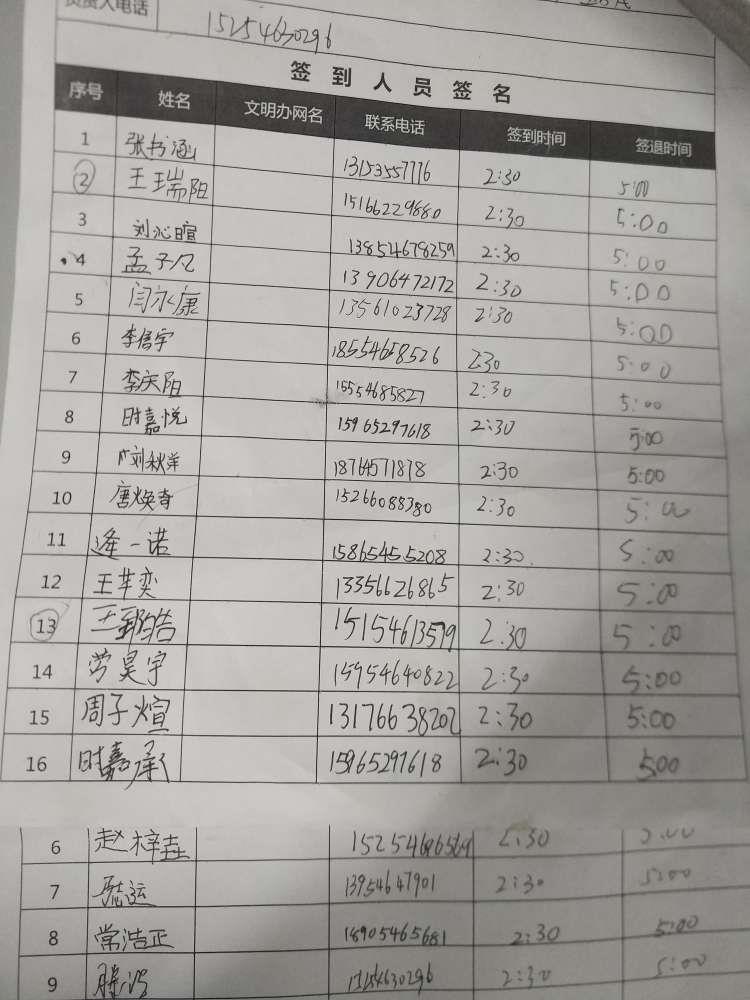 负责人电话 15254630296
签到人员签名
序号 姓名 文明办网名 联系电话 签到时间 签退时间
1 张书涵 13153557776 2:30 5:00
2 王瑞阳 15166229880 2:30 5:00
3 刘沁暄 13854678259 2:30 5:00
4 孟子凡 13906472172 2:30 5:00
5 闫永康 13561023728 2:30 5:00
6 李信宇 18554658526 2:30 5:00
7 李庆阳 15554685827 2:30 5:00
8 时嘉悦 15965297618 2:30 5:00
9 刘秋洋 18764571878 2:30 5:00
10 唐焕奇 15266088380 2:30 5:00
11 逄一诺 15865455208 2:30 5:00
12 王芊奕 13356626865 2:30 5:00
13 王郅皓 15154613579 2:30 5:00
14 劳昊宇 15954640822 2:30 5:00
15 周子煊 13176638202 2:30 5:00
16 时嘉承 15965297618 2:30 500
6 赵梓垚 2:30 5:00
7 13954647901 2:30 5:00
8 常浩正 18905465681 2:30 5:00
9 15254630296 2:30 5:00